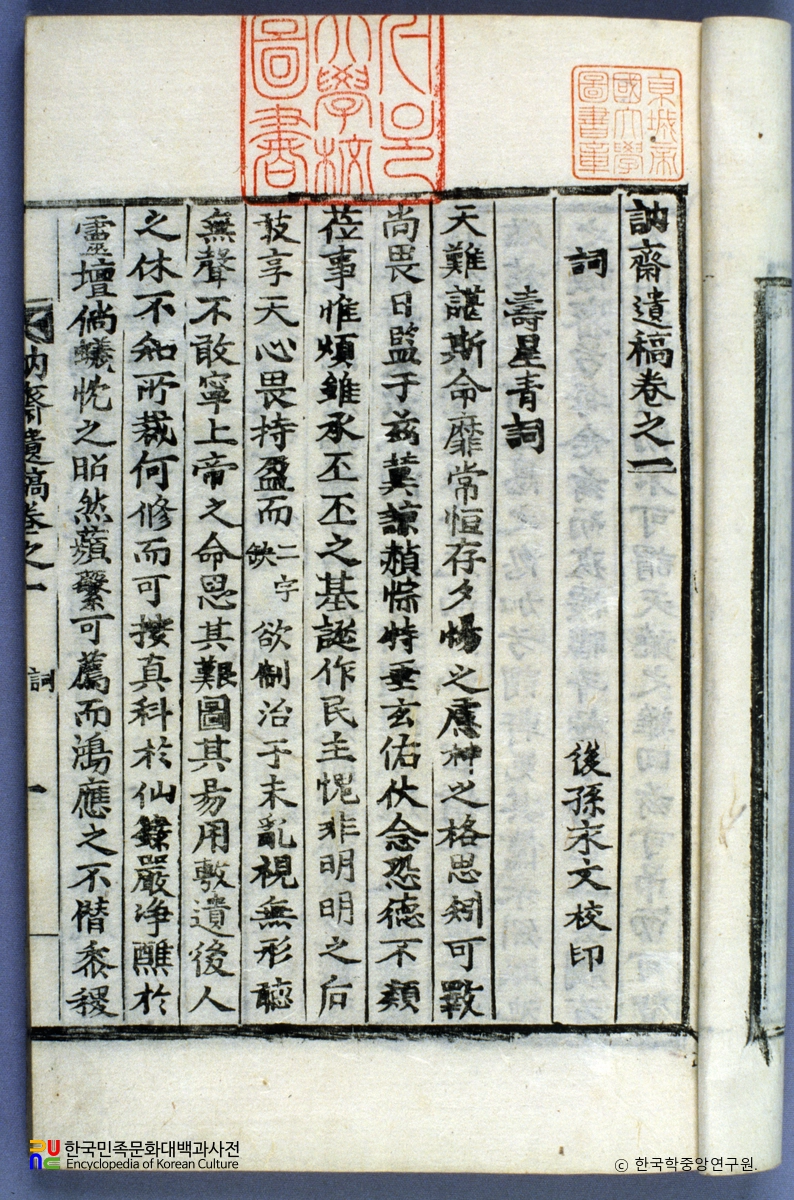 訥齋遺稿卷之一
詞
後孫宋文校印
壽星青詞
天難諶斯命靡常恒存夕惕之慮神之格思矧可斁
尚畏日監于兹冀諒頼悰特垂玄佑伏念恐德不類
莅事惟煩雖承丕丕之基誕作民主愧非明明之后
敢享天心畏持盈而二字缺欲制治于未亂視無形聽
無聲不敢寧上帝之命思其艱圖其易用敷遺後人
之休不知所裁何修而可按真科於仙籙嚴净醮於
靈壇倘蟻忱之昭然蘋蘩可薦而鴻應之不僣黍稷
訥齋遺稿卷之一
詞
一
京城帝國大學圖書章
大學校圖書
한국민족문화대백과사전
Encyclopedia of Korean Culture
© 한국학중앙연구원.